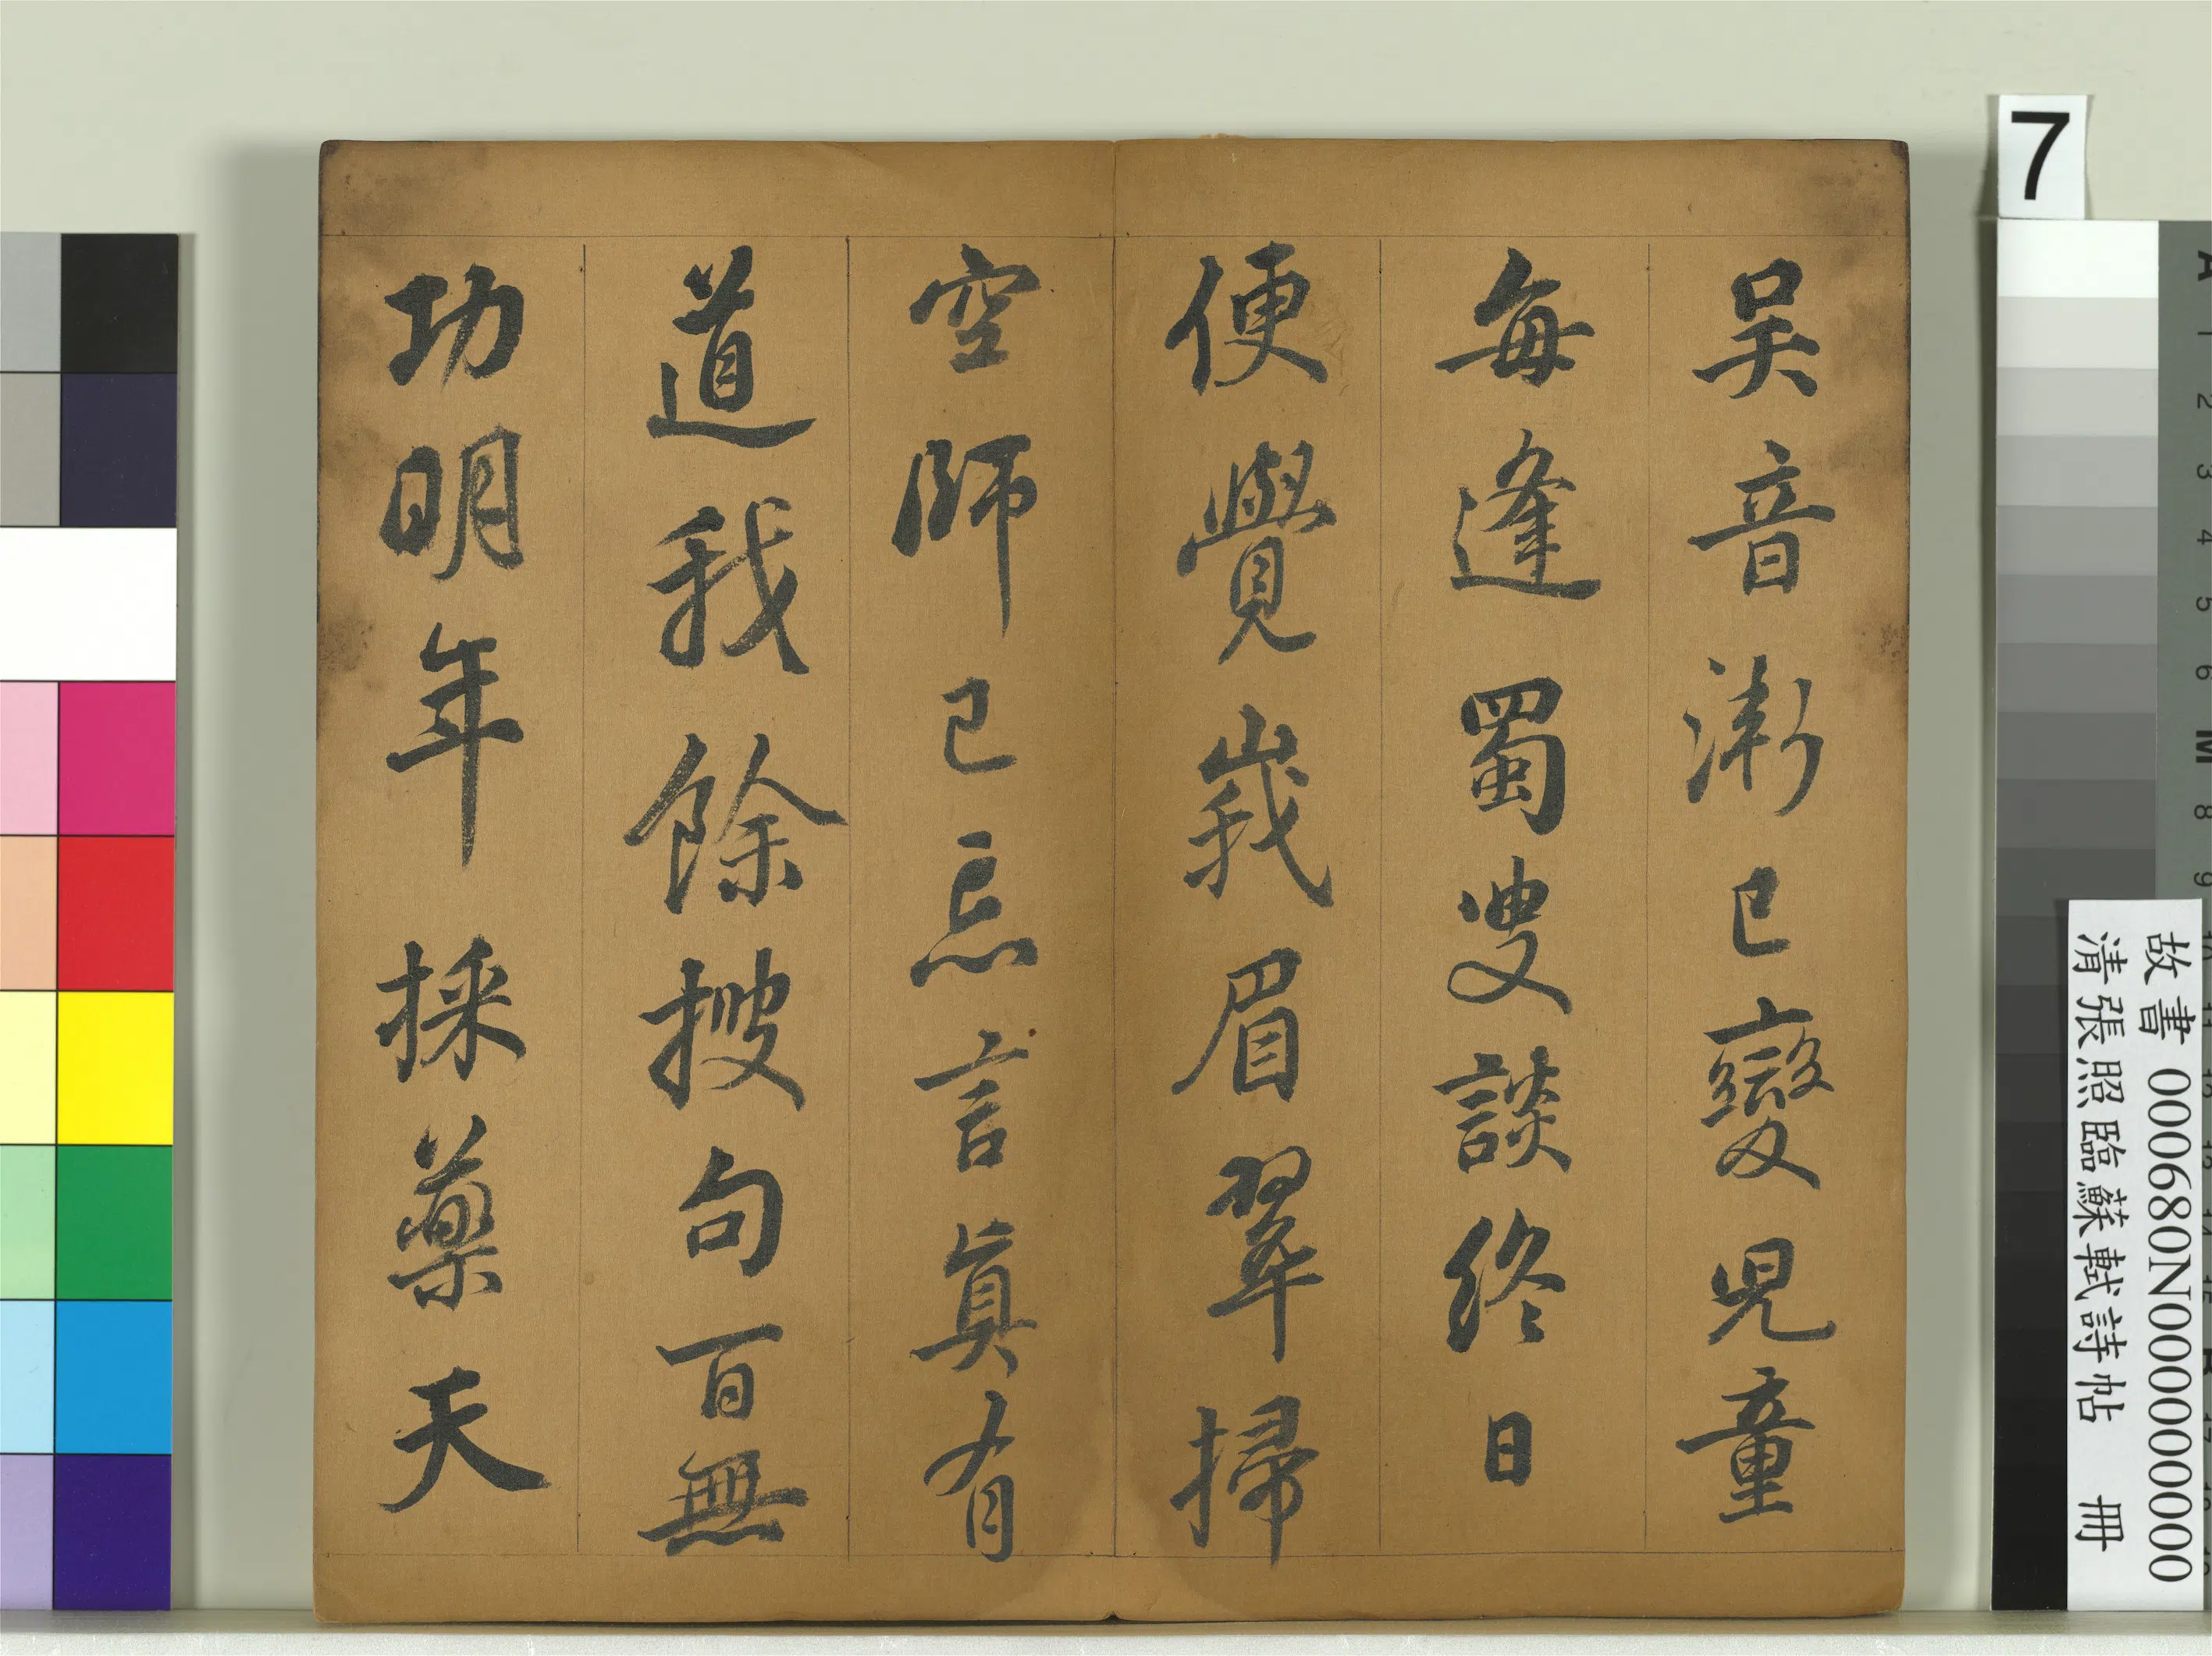 吳音漸已變兒童
每逢蜀叟談終日
便覺峨眉翠掃
空師已忘言眞有
道我餘搜句百無
功明年採藥天
7
故書 000680N000000000
清張照臨蘇軾詩帖 冊